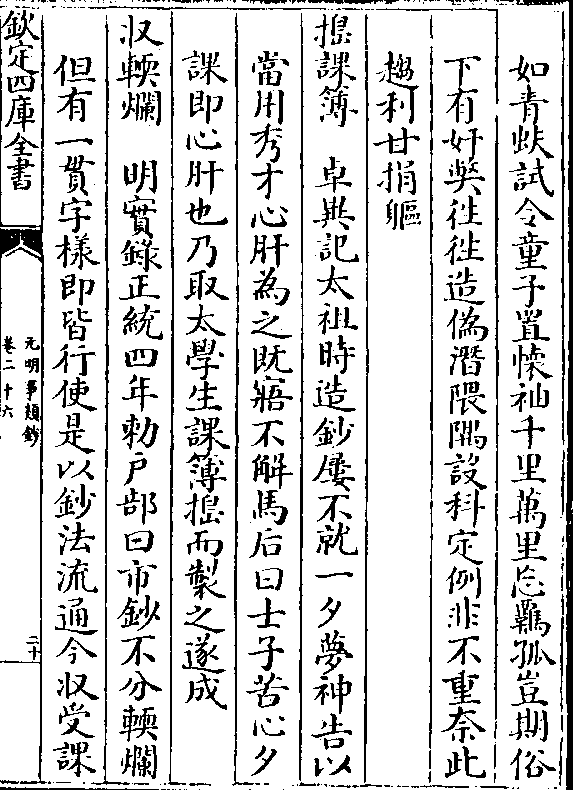 如青蚨試令童子置懷袖千里萬里忘羈孤豈期俗
下有奸弊徃徃造偽潛隈隅設科定例非不重奈此
趨利甘捐軀
搗課簿　卓異記太祖時造鈔屢不就一夕夢神告以
當用秀才心肝為之既寤不解馬后曰士子苦心夕
課即心肝也乃取太學生課簿搗而製之遂成
収輭爛　明實錄正統四年勅戸部曰市鈔不分輭爛
但有一貫字樣即皆行使是以鈔法流通今収受課
欽定四庫全書
元明事類鈔
卷二十六
二十